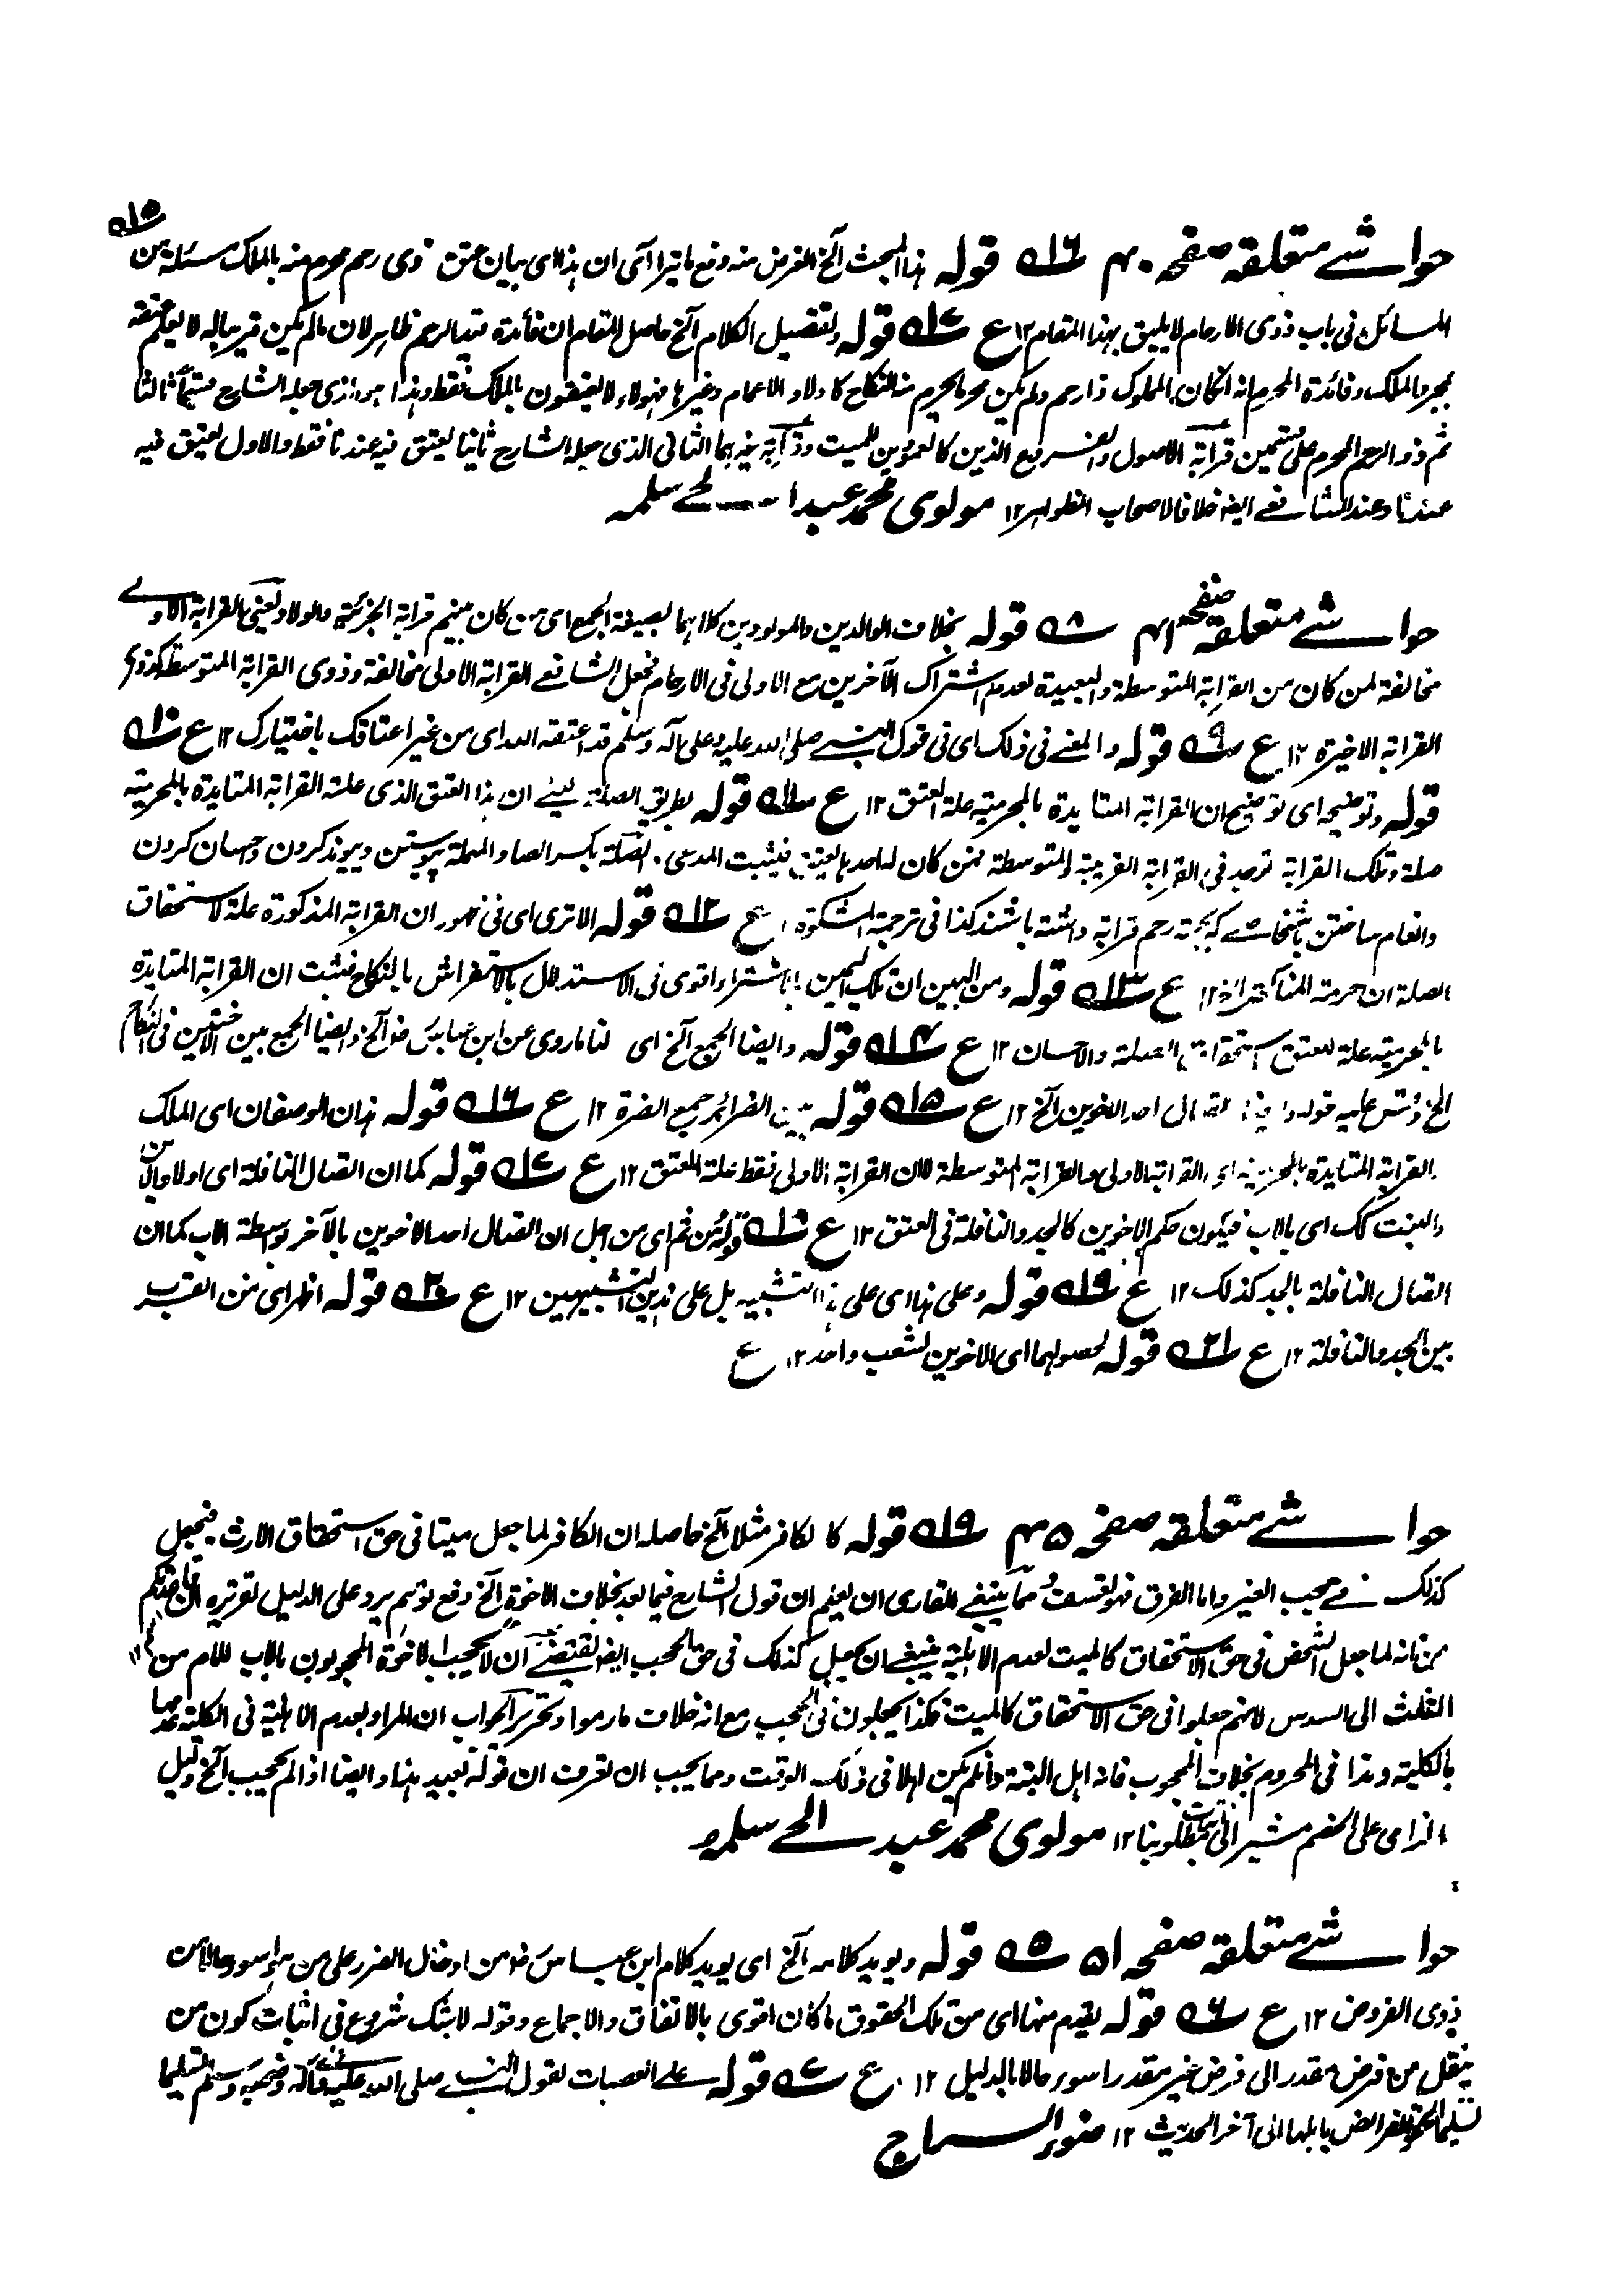 ۱۵
حواشے متعلقہ صفحہ ۴۰ ۱۶ قولہ ہذا المبحث آلخ الغرض منہ دفع ما یتراآی ان ہذا ای بیان عتق ذوی رحم محرم منہ بالملک مسئلۃ من
المسائل فی باب ذوی الارحام لا یلیق بہذا المقام ۱۲ ع ۱۷ قولہ وتفصیل الکلام آلخ حاصل المقام ان فائدۃ قید الرحم ظاہر لان مالم یکن قریبا لہ لا یعلم عتقہ
بمجرد الملک وفائدۃ المحرم انہ ان کان المملوک ذا رحم ولم یکن محرما یحرم منہ النکاح کاولاد الاعمام وغیرہا فہولاء لا یعتقون بالملک فقط وہذا ہو الذی جعلہ الشارع قسمًا ثالثا
ثم ذو الرحم المحرم علی قسمین قرابۃ الاصول والفروع الذین کالعمودین للمیت وقرابۃ غیرہما الثانی الذی جعلہ الشارح ثانیا یعتق فیہ عندنا فقط والاول یعتق فیہ
عندنا وعند الشافعے ایضا خلافا لاصحاب الظواہر ۱۲ مولوی محمد عبد الحے سلمہ
حواشے متعلقہ صفحہ ۴۱ ۸ قولہ بخلاف الوالدین والمولودین کلاہما بصیغۃ الجمع ای من کان بینہم قرابۃ الجزئیۃ والولاد یعنی القرابۃ الاولے
مخالفۃ لمن کان من القرابۃ المتوسطۃ والبعیدۃ لعدم اشتراک الآخرین مع الاولی فی الارحام فجعل الشافعے القرابۃ الاولی مخالفۃ وذوی القرابۃ المتوسطۃ کذوی
القرابۃ الاخیرۃ ۱۲ ع ۹ قولہ والمعنے فی ذلک ای فی قول النبے صلی اللہ علیہ وعلی آلہ وسلم قد اعتقہ اللہ ای من غیر اعتاقک باختیارک ۱۲ ع ۱۰
قولہ وتوضیحہ ای توضیح ان القرابۃ المتایدۃ بالمحرمیۃ علۃ العتق ۱۲ ع ۱۱ قولہ بطریق الصلۃ یعنے ان ہذا العتق الذی علتہ القرابۃ المتایدۃ بالمحرمیۃ
صلۃ وتلک القرابۃ توجد فی القرابۃ القریبۃ والمتوسطۃ فمن کان لہ احدہا یعتق فیثبت المدعی الصلۃ بکسر الصاد المہملۃ پیوستن وپیوند کردن واحسان کردن
وانعام ساختن باشخاصے کہ بجہۃ رحم قرابۃ داشتہ باشند کذا فی ترجمۃ المشکوۃ ع ۱۲ قولہ الا تری ای فی ظہور ان القرابۃ المذکورۃ علۃ لاستحقاق
الصلۃ ان حرمۃ المناکحۃ آلخ ۱۲ ع ۱۳ قولہ ومن البین ان ملک الیمین بالشراء اقوی فی الاستدلال بالاستفراش بالنکاح فثبت ان القرابۃ المتایدۃ
بالمحرمیۃ علۃ للعتق استحقاق الصلۃ والاحسان ۱۲ ع ۱۴ قولہ وایضا الجمع آلخ ای لنا ما روی عن ابن عباس رض آلخ وایضا الجمع بین الاختین فی النکاح
الخ وقس علیہ قولہ وایضا اتصال احد الاخوین آلخ ۱۲ ع ۱۵ قولہ بین الضرائر جمیع الضرۃ ۱۲ ع ۱۶ قولہ ہذان الوصفان ای الملک
القرابۃ المتایدۃ بالمحرمیۃ ای القرابۃ الاولی والقرابۃ المتوسطۃ لا ان القرابۃ الاولی فقط علۃ للعتق ۱۲ ع ۱۷ قولہ کما ان اتصال النافلۃ ای اولاد الابن
والبنت کک ای بالاب فیکون حکم الاخوین کالجد والنافلۃ فی العتق ۱۲ ع ۱۸ قولہ من ثم ای من اجل ان اتصال احد الاخوین بالآخر بواسطۃ الاب کما ان
اتصال النافلۃ بالجد کذلک ۱۲ ع ۱۹ قولہ وعلی ہذا ای علی ہذا التشبیہ بل علی ہذین التشبیہین ۱۲ ع ۲۰ قولہ اظہر ای من القرب
بین الجد والنافلۃ ۱۲ ع ۲۱ قولہ لحصولہما ای الاخوین لشعب واحد ۱۲ ع
حواشے متعلقہ صفحہ ۴۵ ۱۹ قولہ کالکافر مثلا آلخ حاصلہ ان الکافر لما جعل میتا فی حق استحقاق الارث فیجعل
کذلک فے حجب الغیر واما الفرق فہو تعسف مما ینبغے للقاری ان یعلم ان قول الشارع فیما بعد بخلاف الاخوۃ آلخ دفع توہم یرد علی الدلیل تقریرہ ان ما ذکرتم
من انہ لما جعل الشخص فی حق الاستحقاق کالمیت لعدم الاہلیۃ ینبغے ان یجعل کذلک فی حق الحجب ایضا یقتضے ان لا یحجب الاخوۃ المحجوبون بالاب للام من
الثلث الی السدس لانہم جعلوا فی حق الاستحقاق کالمیت فکذا یجعلون فی الحجب مع انہ خلاف ما رموا وتحریر الجواب ان المراد بعدم الاہلیۃ فی الکلیۃ عدمہا
بالکلیۃ وہذا فی المحروم بخلاف المحجوب فانہ اہل البتۃ وان لم یکن اہلا فی ذلک الوقت ومما یجب ان تعرف ان قولہ بعید ہذا وایضا اذا لم یحجب آلخ دلیل
الزامی علی الخصم مشیر الی ثبوت مطلوبنا ۱۲ مولوی محمد عبد الحے سلمہ
حواشے متعلقہ صفحہ ۵۱ ۵ قولہ ویوید کلامہ آلخ ای یوید کلام ابن عباس رض من ادخال الضرر علی من ہو اسوء حالا من
ذوی الفروض ۱۲ ع ۶ قولہ یقدم منہا ای من تلک الحقوق ما کان اقوی بالاتفاق والاجماع وقولہ لا شک شروع فی اثبات کون من
ینقل من فرض مقدر الی فرض غیر مقدر اسوء حالا بالدلیل ۱۲ ع ۷ قولہ علے العصبات لقول النبے صلی اللہ علیہ وآلہ وصحبہ وسلم تسلیما
الحقوا الفرائض باہلہا الی آخر الحدیث ۱۲ ضوء السراج